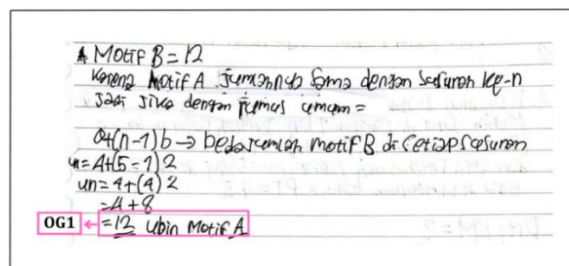 A Motif B = 12
Karena Motif A Jumlahnya Sama dengan Susunan ke-n
Jadi Jika dengan rumus umum =
a+(n-1)b → beda Jumlah motif B di setiap susunan
un = 4+(5-1)2
un = 4+(4)2
= 4+8
OG1 ← = 12 ubin Motif A